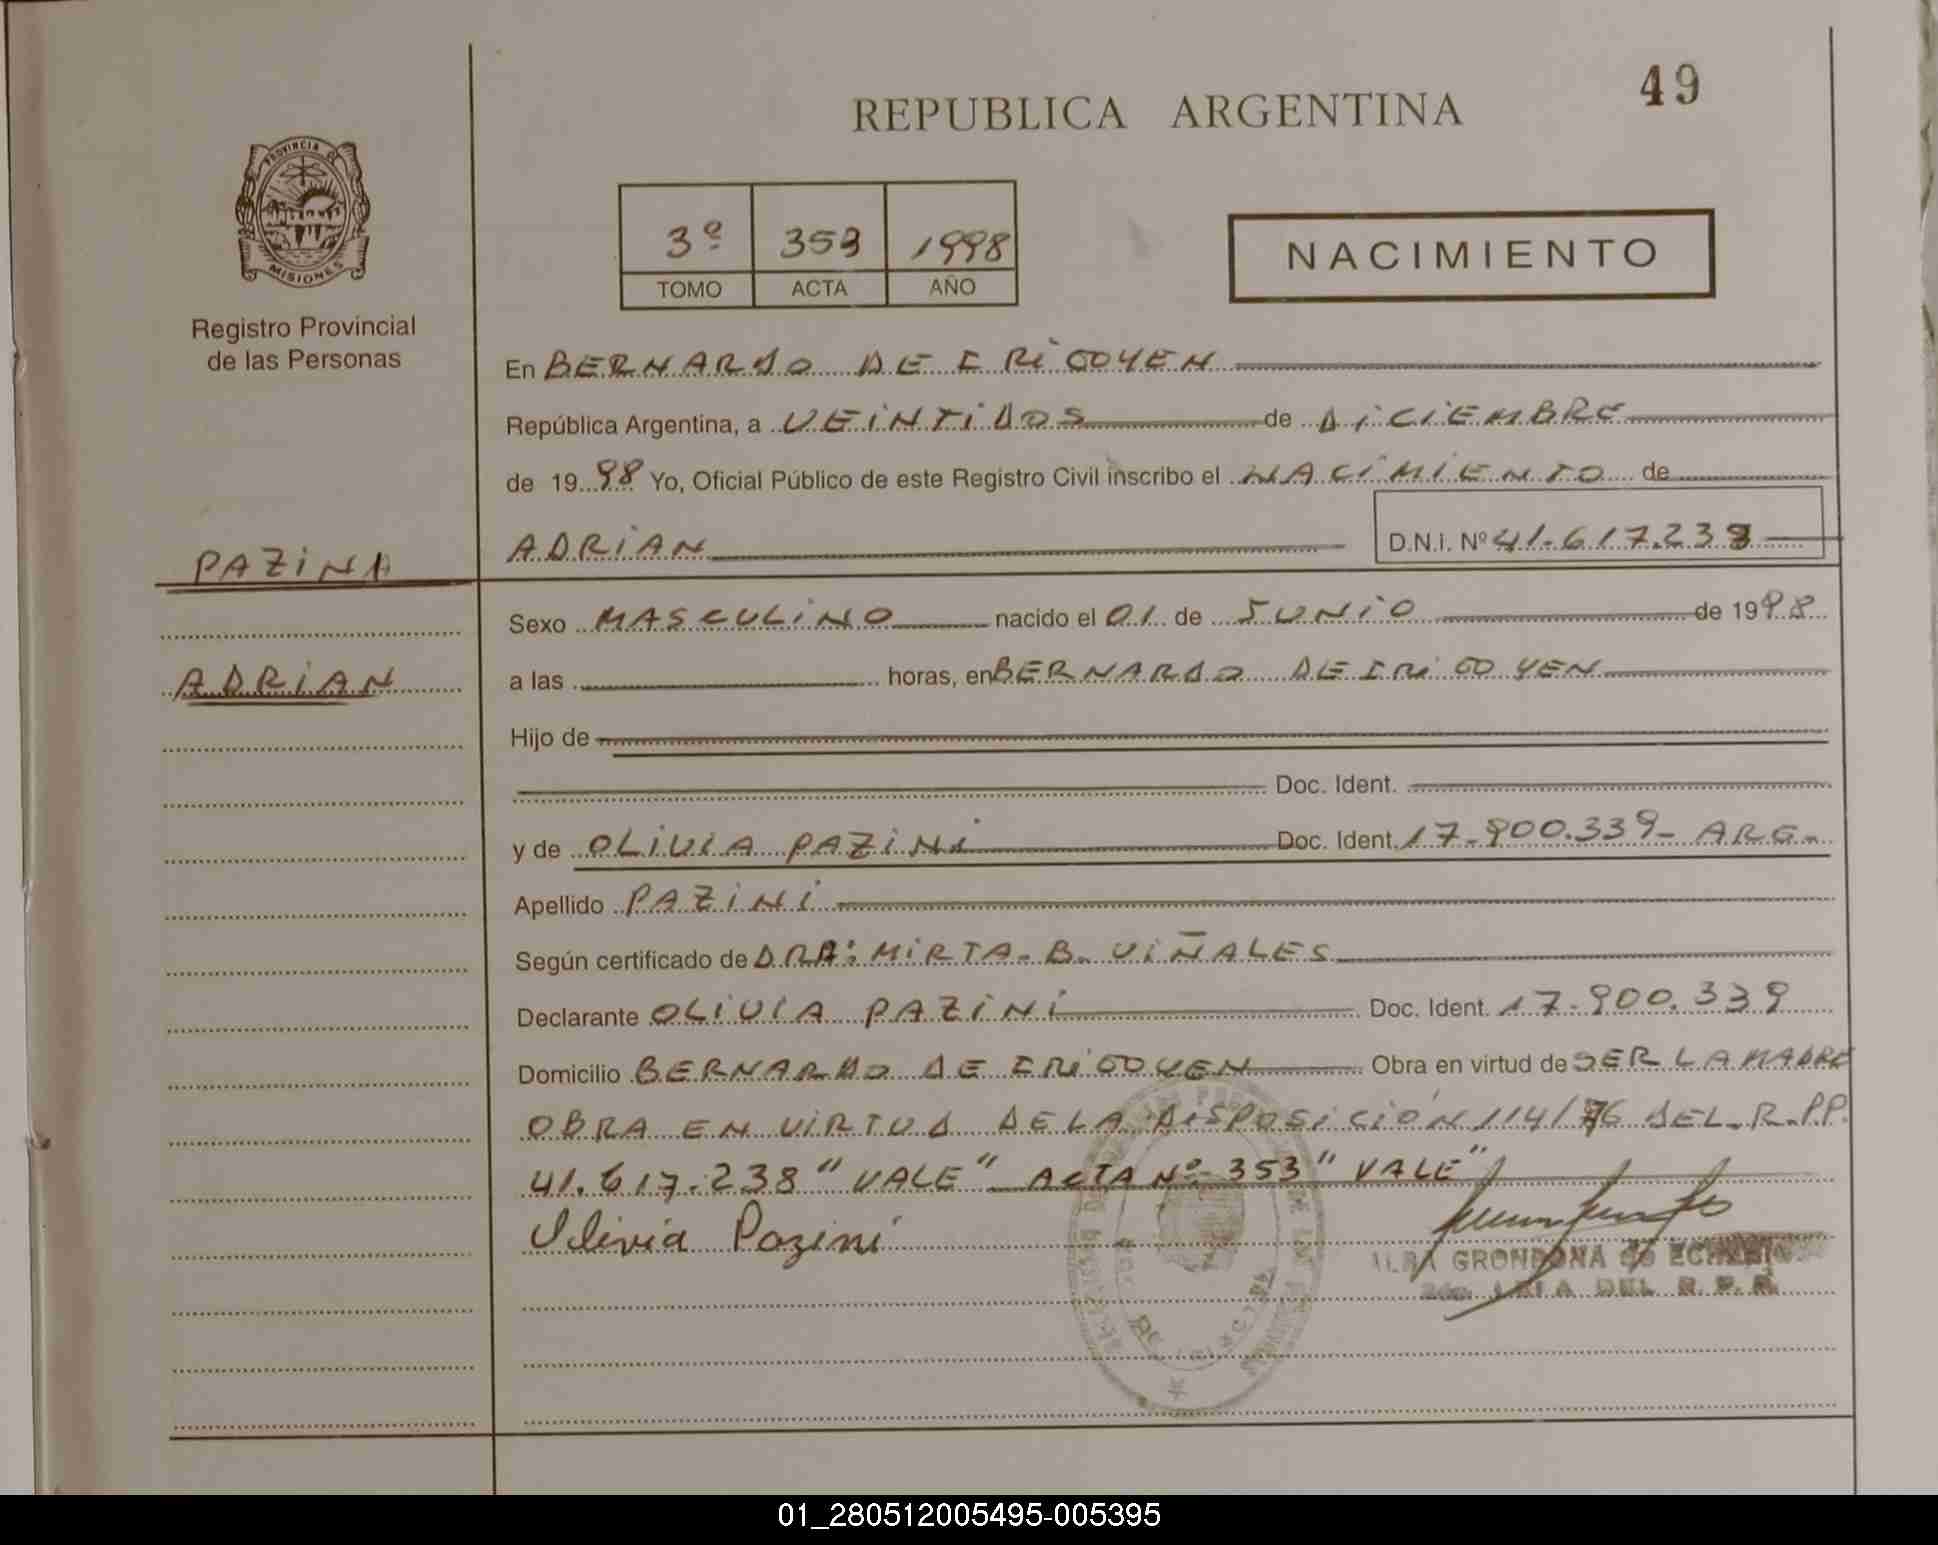 49
REPUBLICA ARGENTINA
PROVINCIA DE
MISIONES
3º 353 1998
TOMO ACTA AÑO
NACIMIENTO
Registro Provincial
de las Personas
En BERNARDO DE IRIGOYEN
República Argentina, a VEINTIDOS de DICIEMBRE
de 1998 Yo, Oficial Público de este Registro Civil inscribo el NACIMIENTO de
ADRIAN D.N.I. Nº 41.617.238
PAZINI
ADRIAN
Sexo MASCULINO nacido el 01 de JUNIO de 1998
a las horas, en BERNARDO DE IRIGOYEN
Hijo de
Doc. Ident.
y de OLIVIA PAZINI Doc. Ident. 17-900.339- ARG.
Apellido PAZINI
Según certificado de DRA: MIRTA. B. VIÑALES
Declarante OLIVIA PAZINI Doc. Ident. 17-900.339
Domicilio BERNARDO DE IRIGOYEN Obra en virtud de SER LA MADRE
OBRA EN VIRTUD DE LA DISPOSICIÓN 114/76 DEL R.P.P.
41.617.238 "VALE" ACTA Nº 353 "VALE"
Olivia Pazini
ALBA GRONDONA
DEL R.P.P.
01_280512005495-005395